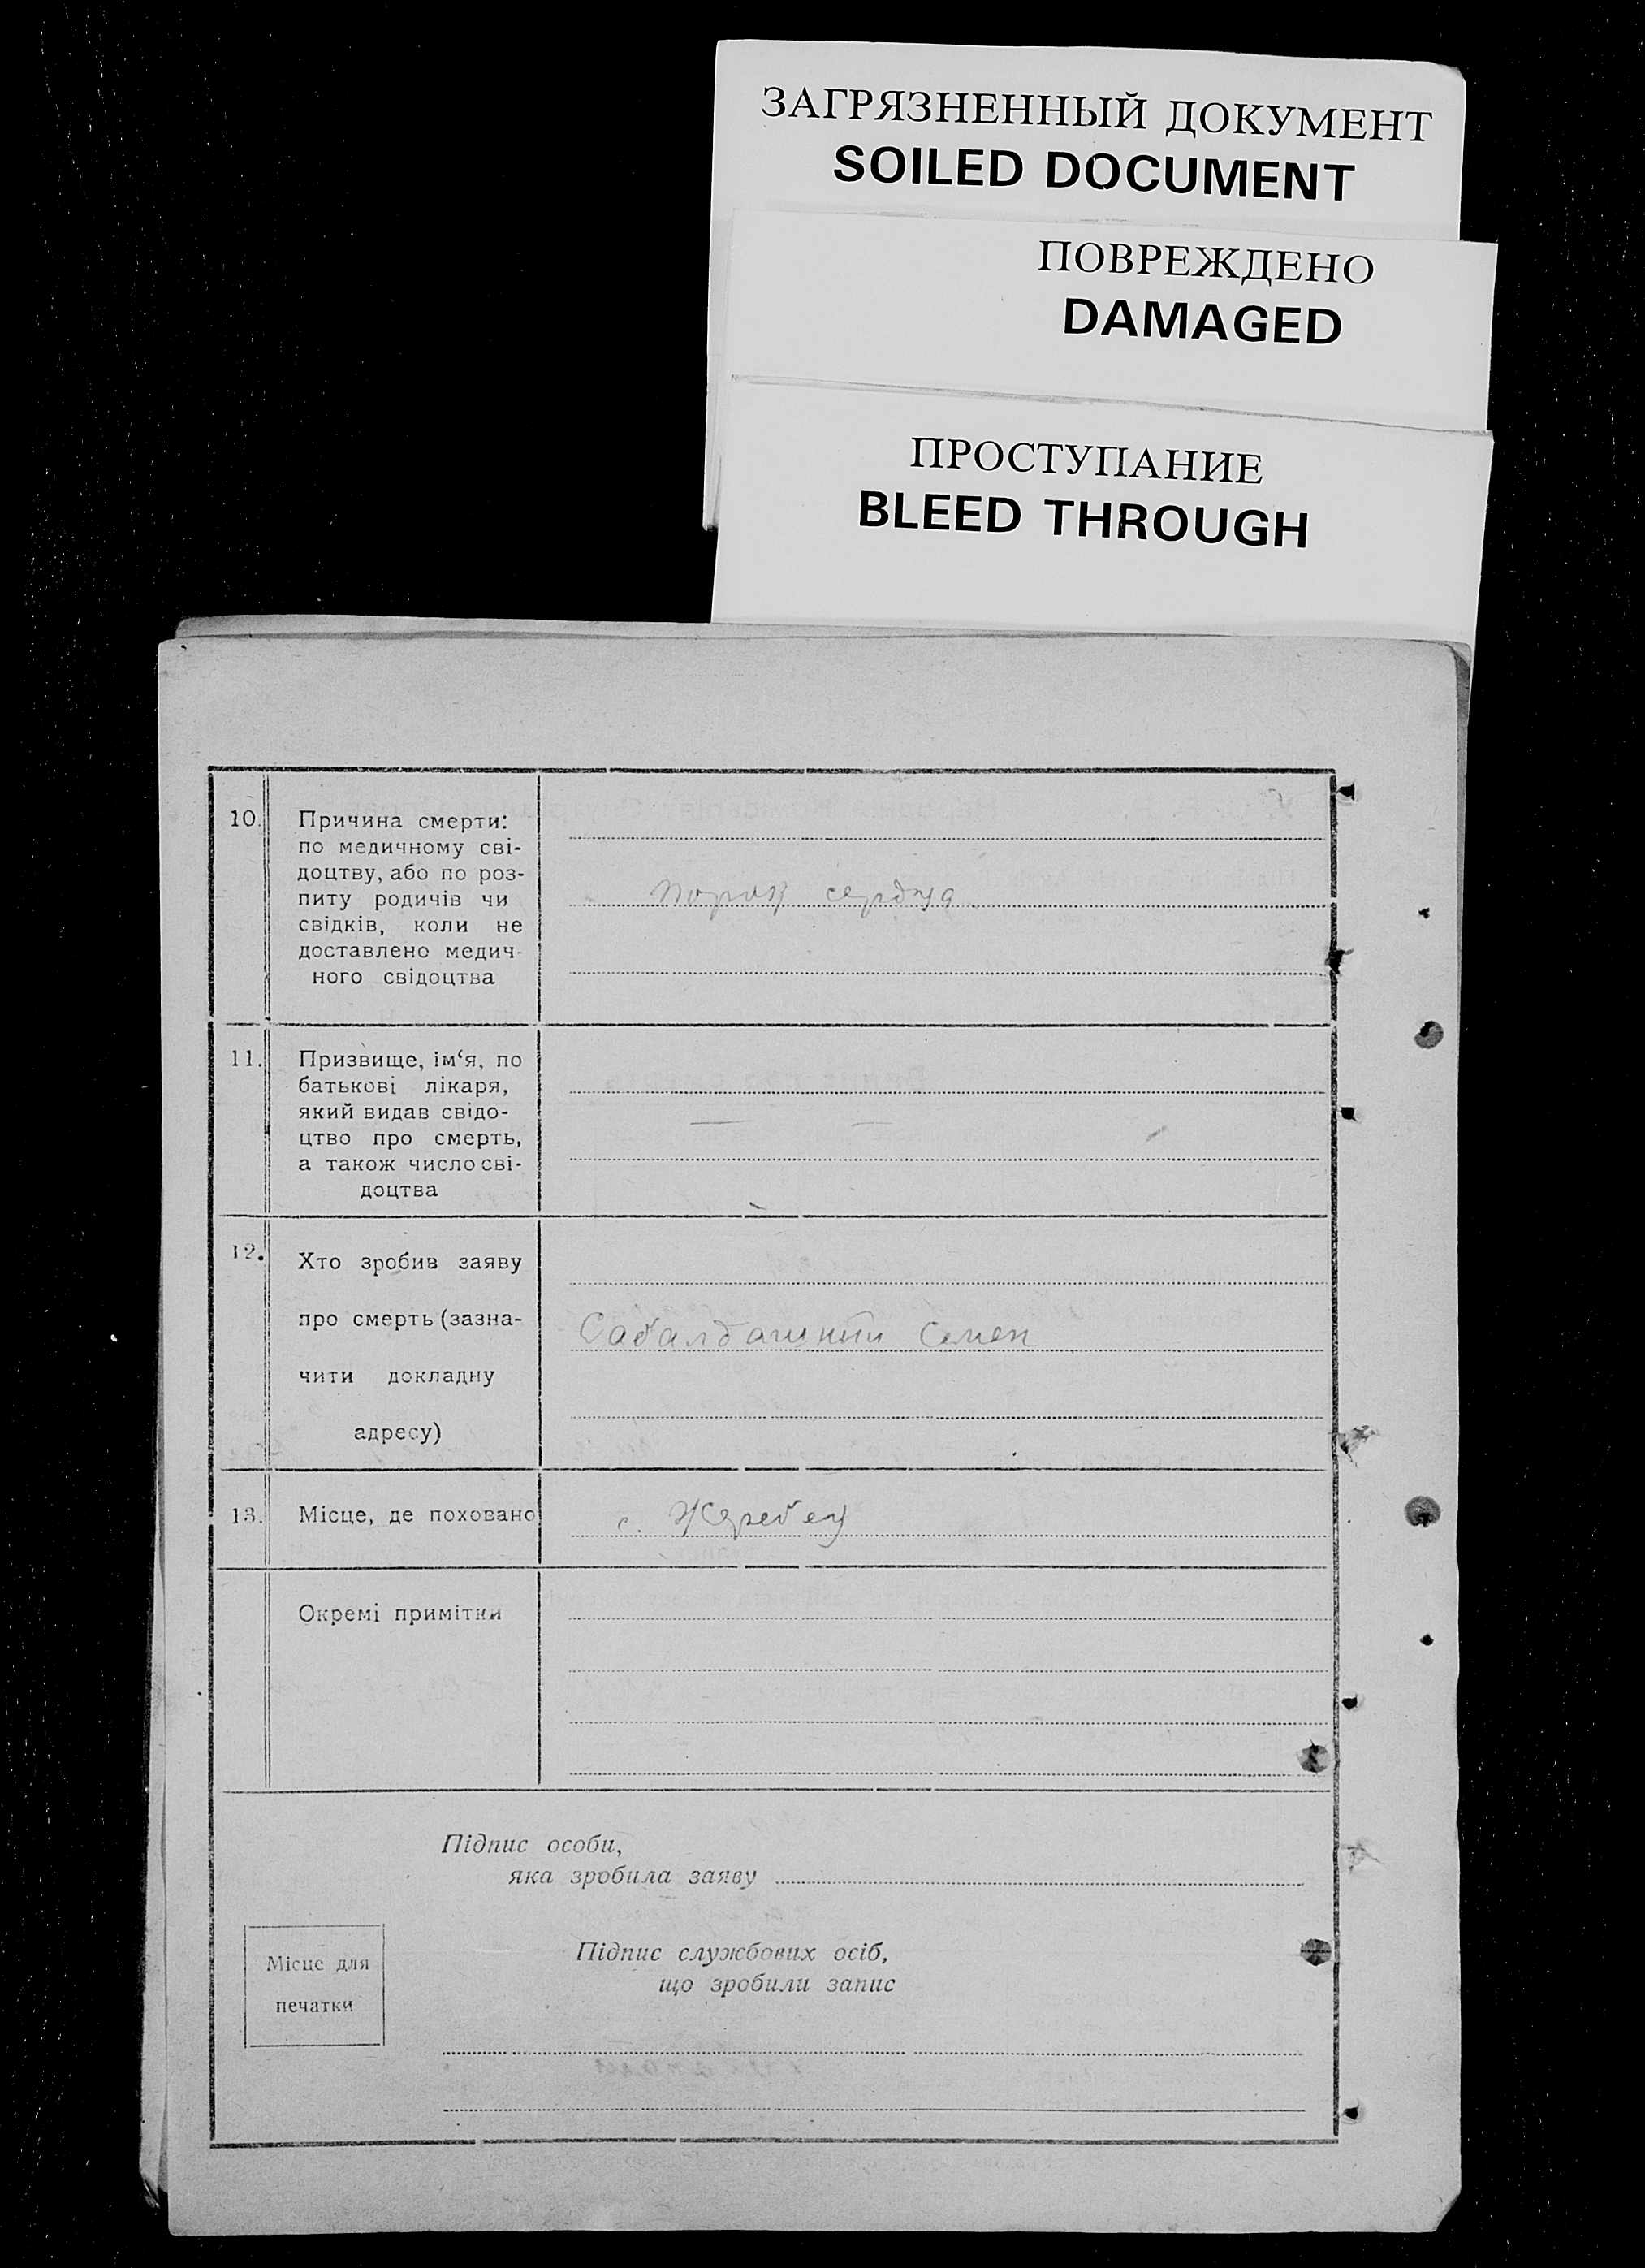 ЗАГРЯЗНЕННЫЙ ДОКУМЕНТ
SOILED DOCUMENT
ПОВРЕЖДЕНО
DAMAGED
ПРОСТУПАНИЕ
BLEED THROUGH
10. Причина смерти:
по медичному сві-
доцтву, або по роз-
питу родичів чи
свідків, коли не
доставлено медич-
ного свідоцтва
порок сердца
11. Призвище, ім‘я, по
батькові лікаря,
який видав свідо-
цтво про смерть,
а також число сві-
доцтва
12. Хто зробив заяву
про смерть (зазна-
чити докладну
адресу)
Семен
13. Місце, де поховано
с. Жеребец
Окремі примітки
Підпис особи,
яка зробила заяву
Місце для
печатки
Підпис службових осіб,
що зробили запис